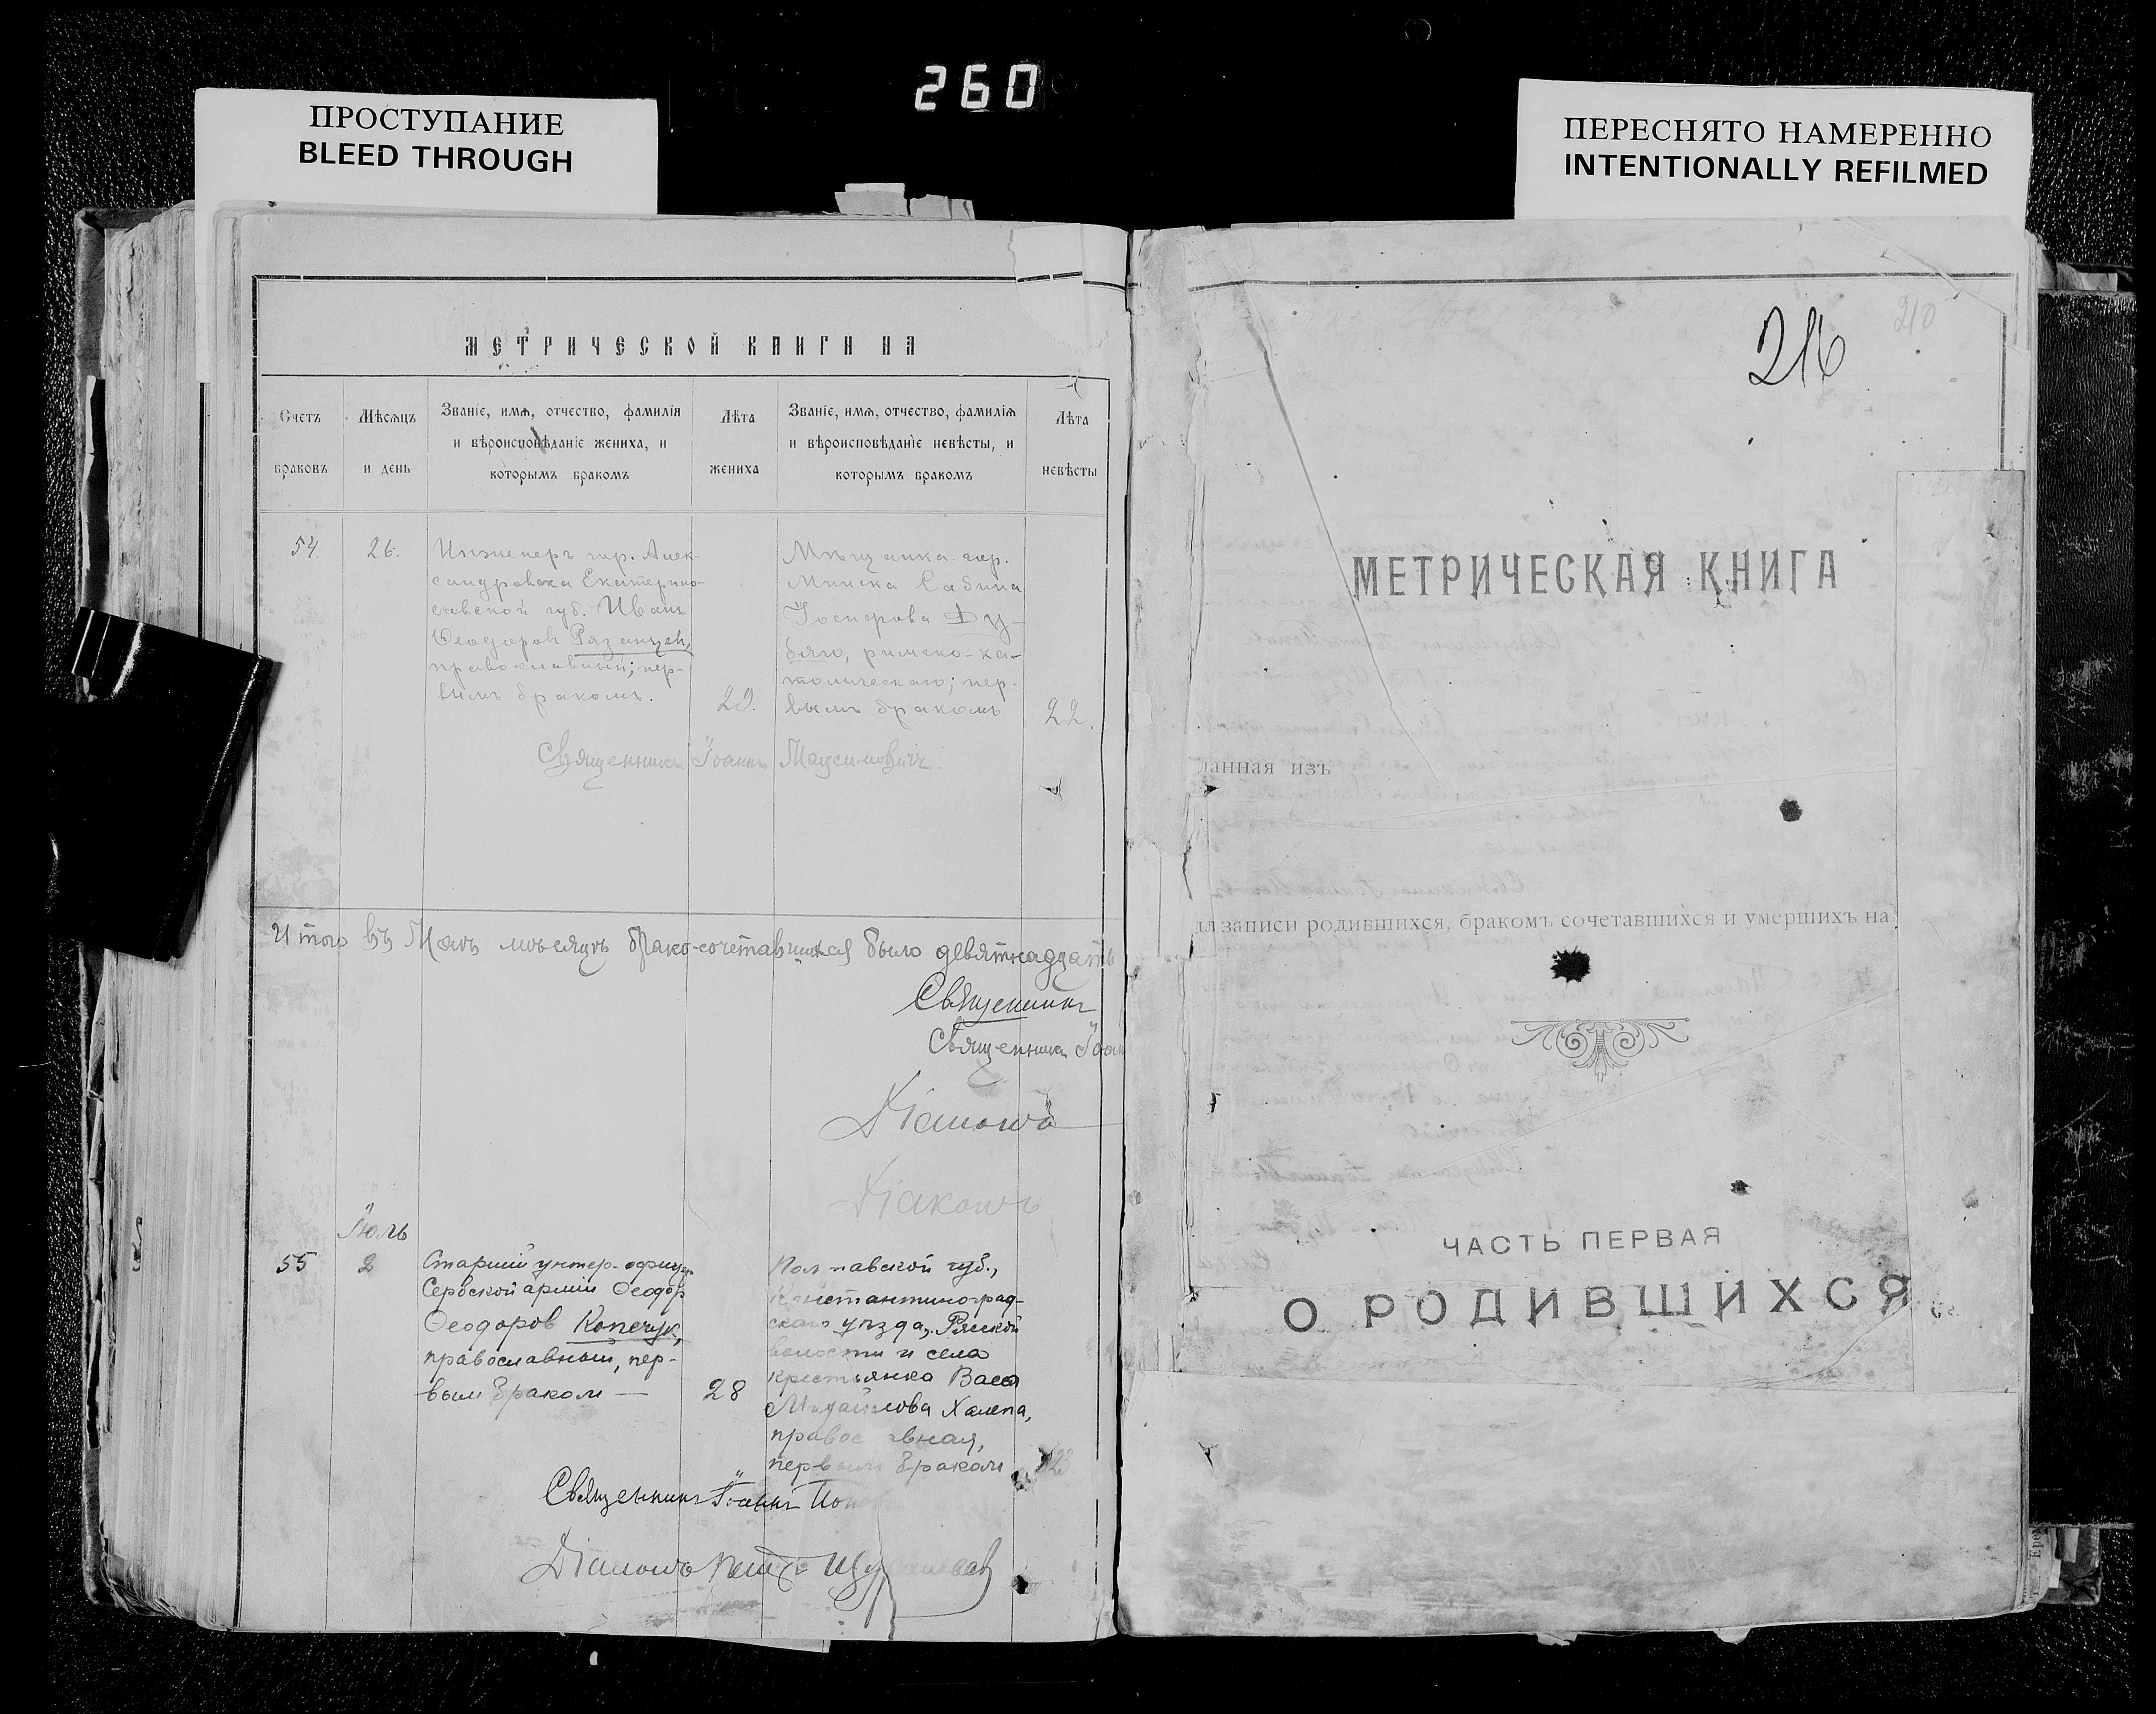 260
ПРОСТУПАНИЕ
BLEED THROUGH
ПЕРЕСНЯТО НАМЕРЕННО
INTENTIONALLY REFILMED
МЕТРИЧЕСКОЙ КНИГИ НА
Счетъ
браковъ
Мѣсѧцъ
и день
Званіе, имѧ, отчество, фамилія
и вѣроисповѣданіе жениха, и
которымъ бракомъ
Лѣта
жениха
Званіе, имѧ, отчество, фамилія
и вѣроисповѣданіе невѣсты, и
которымъ бракомъ
Лѣта
невѣсты
54.
26.
Инженеръ гор. Алек-
сандровска Екатерино-
славской губ. Иванъ
Ѳеодоровъ Рязанцев,
православный; пер-
вымъ бракомъ.
29.
Мѣщанка гор.
Минска Сабина
Іосифова Ду-
бяго, римско-ка-
толическаго; пер-
вымъ бракомъ
22.
Священникъ Іоаннъ Максимовичъ
Итого въ Маѣ мѣсяцѣ бракосочетавшихся было девятнадцать
Священникъ
Священникъ Іоан
Діаконъ
Діаконъ
Іюль
55
2
Старшій унтер-офицер
Сербской арміи Ѳеодор
Ѳеодоров Копечук,
православный, пер-
вым браком —
28
Полтавской губ.,
Константиноград-
скаго уѣзда, Рясской
волости и села
крестьянка Васса
Михайлова Халепа,
правос авная,
первым браком
23
Священникъ Іоаннъ Попов
Діаконъ
216
210
МЕТРИЧЕСКАЯ КНИГА
данная изъ
для записи родившихся, бракомъ сочетавшихся и умершихъ на
ЧАСТЬ ПЕРВАЯ
О РОДИВШИХСЯ